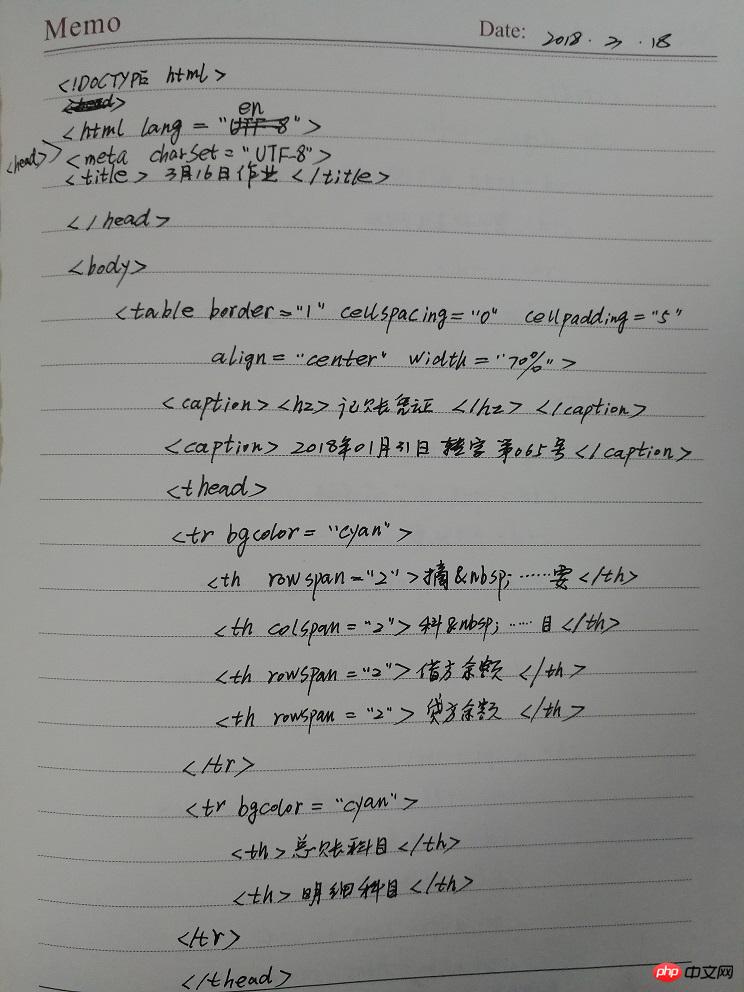 Memo Date: 2018.3.18
<!DOCTYPE html>
<html lang = "en">
<head>
<meta charset = "UTF-8">
<title> 3月16日作业 </title>
</head>
<body>
<table border = "1" cellspacing = "0" cellpadding = "5"
align = "center" width = "70%">
<caption> <h2> 记账凭证 </h2> </caption>
<caption> 2018年01月31日 转字第065号 </caption>
<thead>
<tr bgcolor = "cyan">
<th rowspan = "2"> 摘&nbsp; ……要 </th>
<th colspan = "2"> 科&nbsp; ……目 </th>
<th rowspan = "2"> 借方余额 </th>
<th rowspan = "2"> 贷方余额 </th>
</tr>
<tr bgcolor = "cyan">
<th> 总账科目 </th>
<th> 明细科目 </th>
</tr>
</thead>
php 中文网